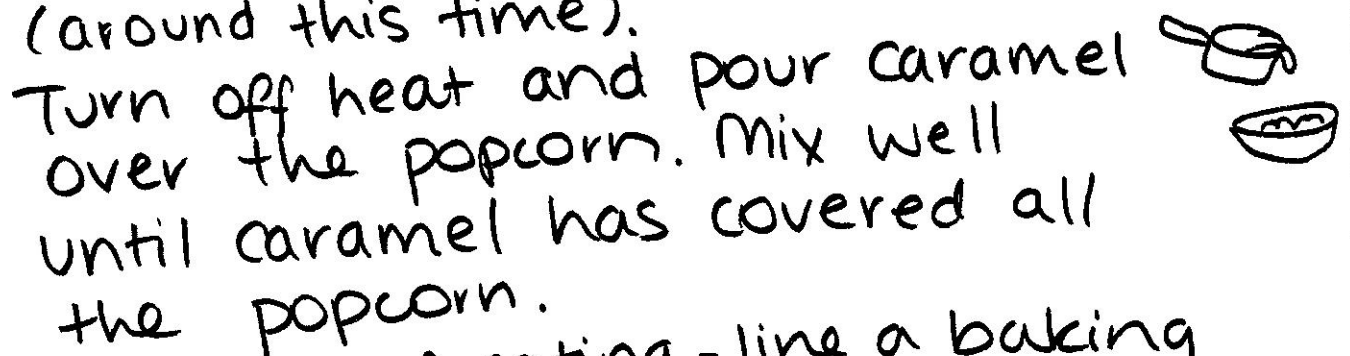 (around this time).
Turn off heat and pour caramel
over the popcorn. Mix well
until caramel has covered all
the popcorn.
line a baking